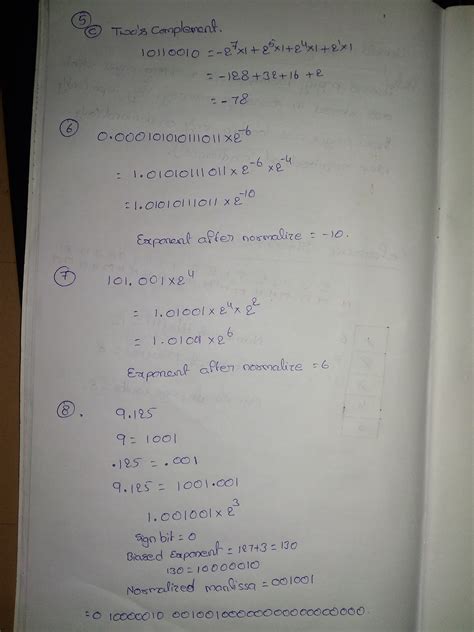 ⑤
Ⓒ Two's Complement.
10110010 = -2⁷×1+2⁵×1+2⁴×1+2¹×1
= -128+32+16+2
= -78
⑥
0.00010101011011×2⁻⁶
= 1.01010111011×2⁻⁶×2⁻⁴
= 1.01010111011×2⁻¹⁰
Exponent after normalize = -10.
⑦ 101.001×2⁴
= 1.01001×2⁴×2²
= 1.01001×2⁶
Exponent after normalize = 6
⑧. 9.125
9 = 1001
.125 = .001
9.125 = 1001.001
1.001001×2³
Sign bit = 0
Biased Exponent = 127+3 = 130
130 = 10000010
Normalized mantissa = 001001
= 0 10000010 00100100000000000000000.